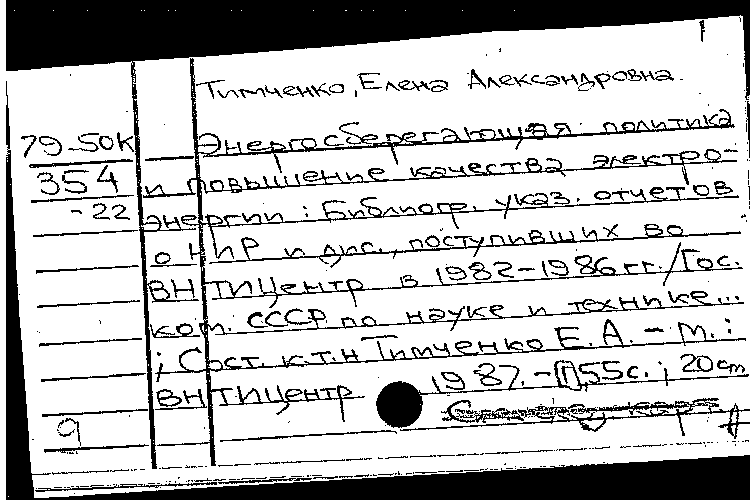 Тимченко, Елена Александровна.
79-50К Энергосберегающая политика
354 и повышение качества электро-
-22 энергии : Библиогр. указ. отчетов
о НИР и дис., поступивших во
ВНТИЦентр в 1982-1986 гг. / Гос.
ком. СССР по науке и технике...
; Сост. к.т.н Тимченко Е. А. - М. :
ВНТИЦентр 1987. - [1], 55 с. ; 20 см
9